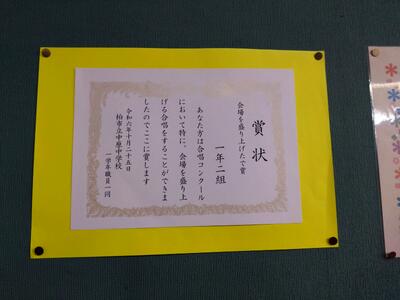 賞状
会場を盛り上げたで賞
一年二組
あなた方は合唱コンクール
において特に、会場を盛り上
げる合唱をすることができま
したのでここに賞します
令和六年十月二十五日
柏市立中原中学校
一学年職員一同